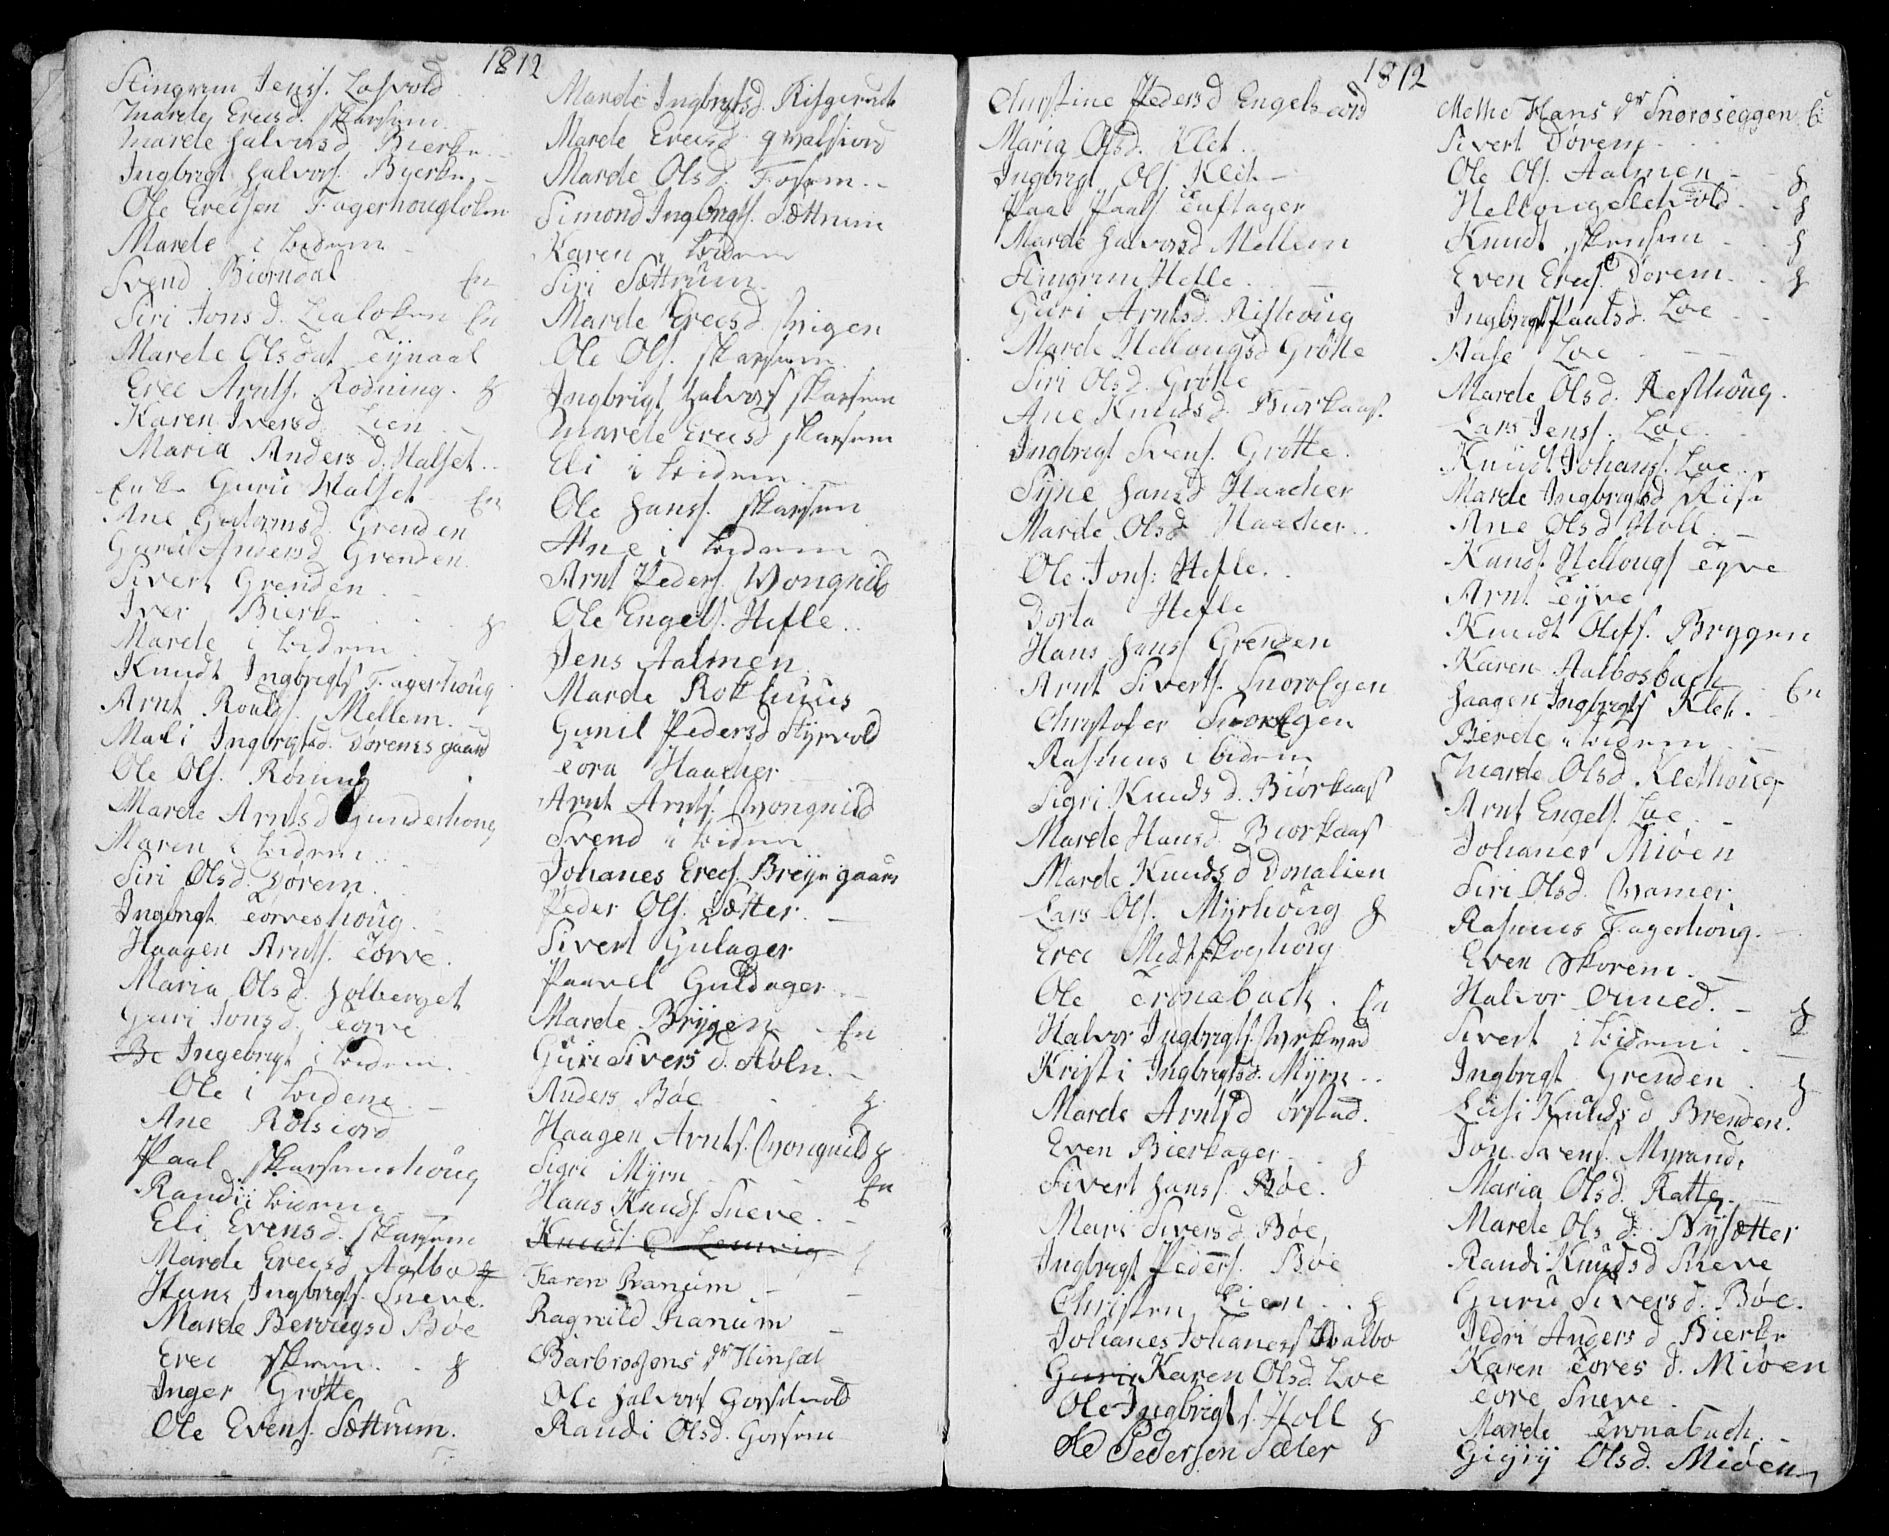 1812
Stingrim Jensf. Losvold
Marde Erecsd. Skarsem
Marde Halvorsd Bierke
Ingbrigt Halvorf. Byerke
Ole Erecsen Fagerhougloken
Marde i bidem
Svend Biorndal En
Siri Jonsd. Lialoken En
Marde Olsdat Tynaal
Erec Arntf. Rodning. g
Karen Iversd. Lien
Maria Andersd. Halset
Enke Guru Halset En
Ane Guttormsd. Grenden
Guru Andersd Grenden
Sivert Grenden
Iver Bierke g
Marde i bidem
Knudt Ingbrigtf. Fagerhoug
Arnt Roaldf. Mellem
Mali Ingbrigtsd. Dørems gaard
Ole Olf. Røning
Marde Arntsd Gunderhoug
Maren i bidem
Siri Olsd. Dørem
Ingbrigt Torveshoug
Haagen Arntf. Torve
Maria Olsd. Holberget
Guri Jonsd. Torve
Be Ingebrigt i bidem
Ole i bidem
Ane Rolsiord
Paal Skarsemshoug
Randi i bidem
Eli Evensd. Skarsem
Marde Erecsd Aalbo
Hans Ingbrigtf. Sneve
Marde Bervigsd Bøe
Erec Skorem g
Inger Grøtte
Ole Evenf. Sættrum.
Marde Ingbrigtsd. Risgerude
Marde Erecsd qvalsiord
Marde Olsd. Fossem
Simond Ingbrigtf. Sættrum
Karen i bidem
Siri Sættrum
Marde Erecsd. Uvigen
Ole Olf. Skarsem
Ingbrigt Halvorf Skarsem
Marde Erecsd Skarsem
Eli i bidem
Ole Hansf. Skarsem
Ane i bidem
Arnt Pedersf. Wongnild
Ole Engelf. Hefle
Jens Aalmen
Marde Rotthuus
Gunil Pedersd Styrvold
Tora Haacker
Arnt Arntf. Wongnild
Svend i bidem
Johanes Erecf. Breyn gaard
Peder Olf. Sætter
Sivert Gulager
Paavel Guldager
Marde Brygen En
Guri Siversd. Stoln
Anders Bøe g
Haagen Arntf. Wongnild g
Sigri Myrn
Hans Knudf. Sneve En
Knudt C Lenvig
Karen Branum
Ragnild Branum
Barbro Jons dr Hinsæt
Ole Halvorf Gorsetvold
Randi Olsd. Gorsem
1812
Christine Pedersd Engelsiord
Maria Olsd. Klet
Ingbrigt Olf Klet
Paal Paalf Tuftager
Marde Halvorsd Mellem
Stingrim Hefle
Guri Arntsd. Risthoug
Marde Hellougsd Grøtte
Siri Olsd Grøtte
Ane Knudsd. Biorkaas
Ingbrigt Svenf. Grøtte
Syne Hansd Haacker
Marde Olsd Haacker
Ole Jonf: Hefle
Dorta Hefle
Hans Hansf Grenden
Arnt Sivertf. Snoroegen
Christofer Snoroegen
Rasmus i bidem
Sigri Knudsd. Biorkaas
Marde Hansd. Biorkaas
Marde Knudsd Donalien
Lars Olf. Myrhoug g
Erec Medskoghoug
Ole Tronabach En
Halvor Ingbrigtf. Myrkvad
Kristi Ingbrigtsd. Myrn
Marde Arntsd Orstad
Even Bierkager g
Sivert Hansf. Bøe
Mari Siversd. Bøe
Ingbrigt Pedersf. Bøe
Christen Lien g
Johanes Johanesf Aalbo
Guri Karen Olsd. Loe
Ole Ingbrigtf. Holl g
Ole Pedersen Sæter
Mette Hans dr Snoroseggen
Sivert Dørem
Ole Olf. Aalmen g
Helloug Sletvold g
Knudt Skarsem g
Even Erecf. Dorem g
Ingbrigt Paalsd. Loe
Aase Loe
Marde Olsd. Resthoug
Lars Jensf. Loe
Knudt Johansf. Loe
Marde Ingbrigtsd Riise
Ane Olsd Holl
Knudt Hellougf Tyve
Arnt Tyve
Knudt Olsf. Brygen
Karen Aalbosbach En
Haagen Ingbrigtf Klet
Berde i bidem
Marde Olsd Klethoug
Arnt Engelf. Loe
Johanes Mioen
Siri Olsd. Cramer
Rasmus Fagerhoug
Even Skorem
Halvor Auned g
Sivert i bidem
Ingbrigt Grenden g
Lusi Knudsd Brenden
Jon Svenf. Myrand
Maria Olsd. Ratte
Marde Ols d: Nysætter
Randi Knudsd Rieve
Guru Siversd. Bøe
Ildri Andersd Bierke
Karen Tores d. Mioen
Tore Sneve
Marde Tronabach
Gigiy Olsd. Mioen